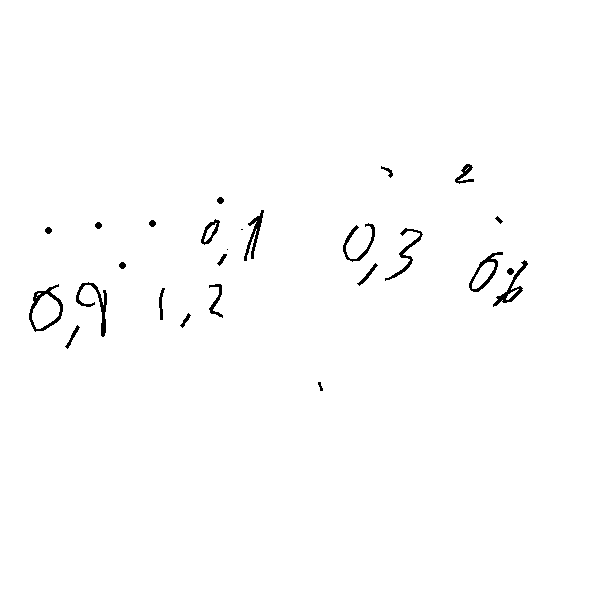 2
0,1 0,3 0,6
0,9 1,2